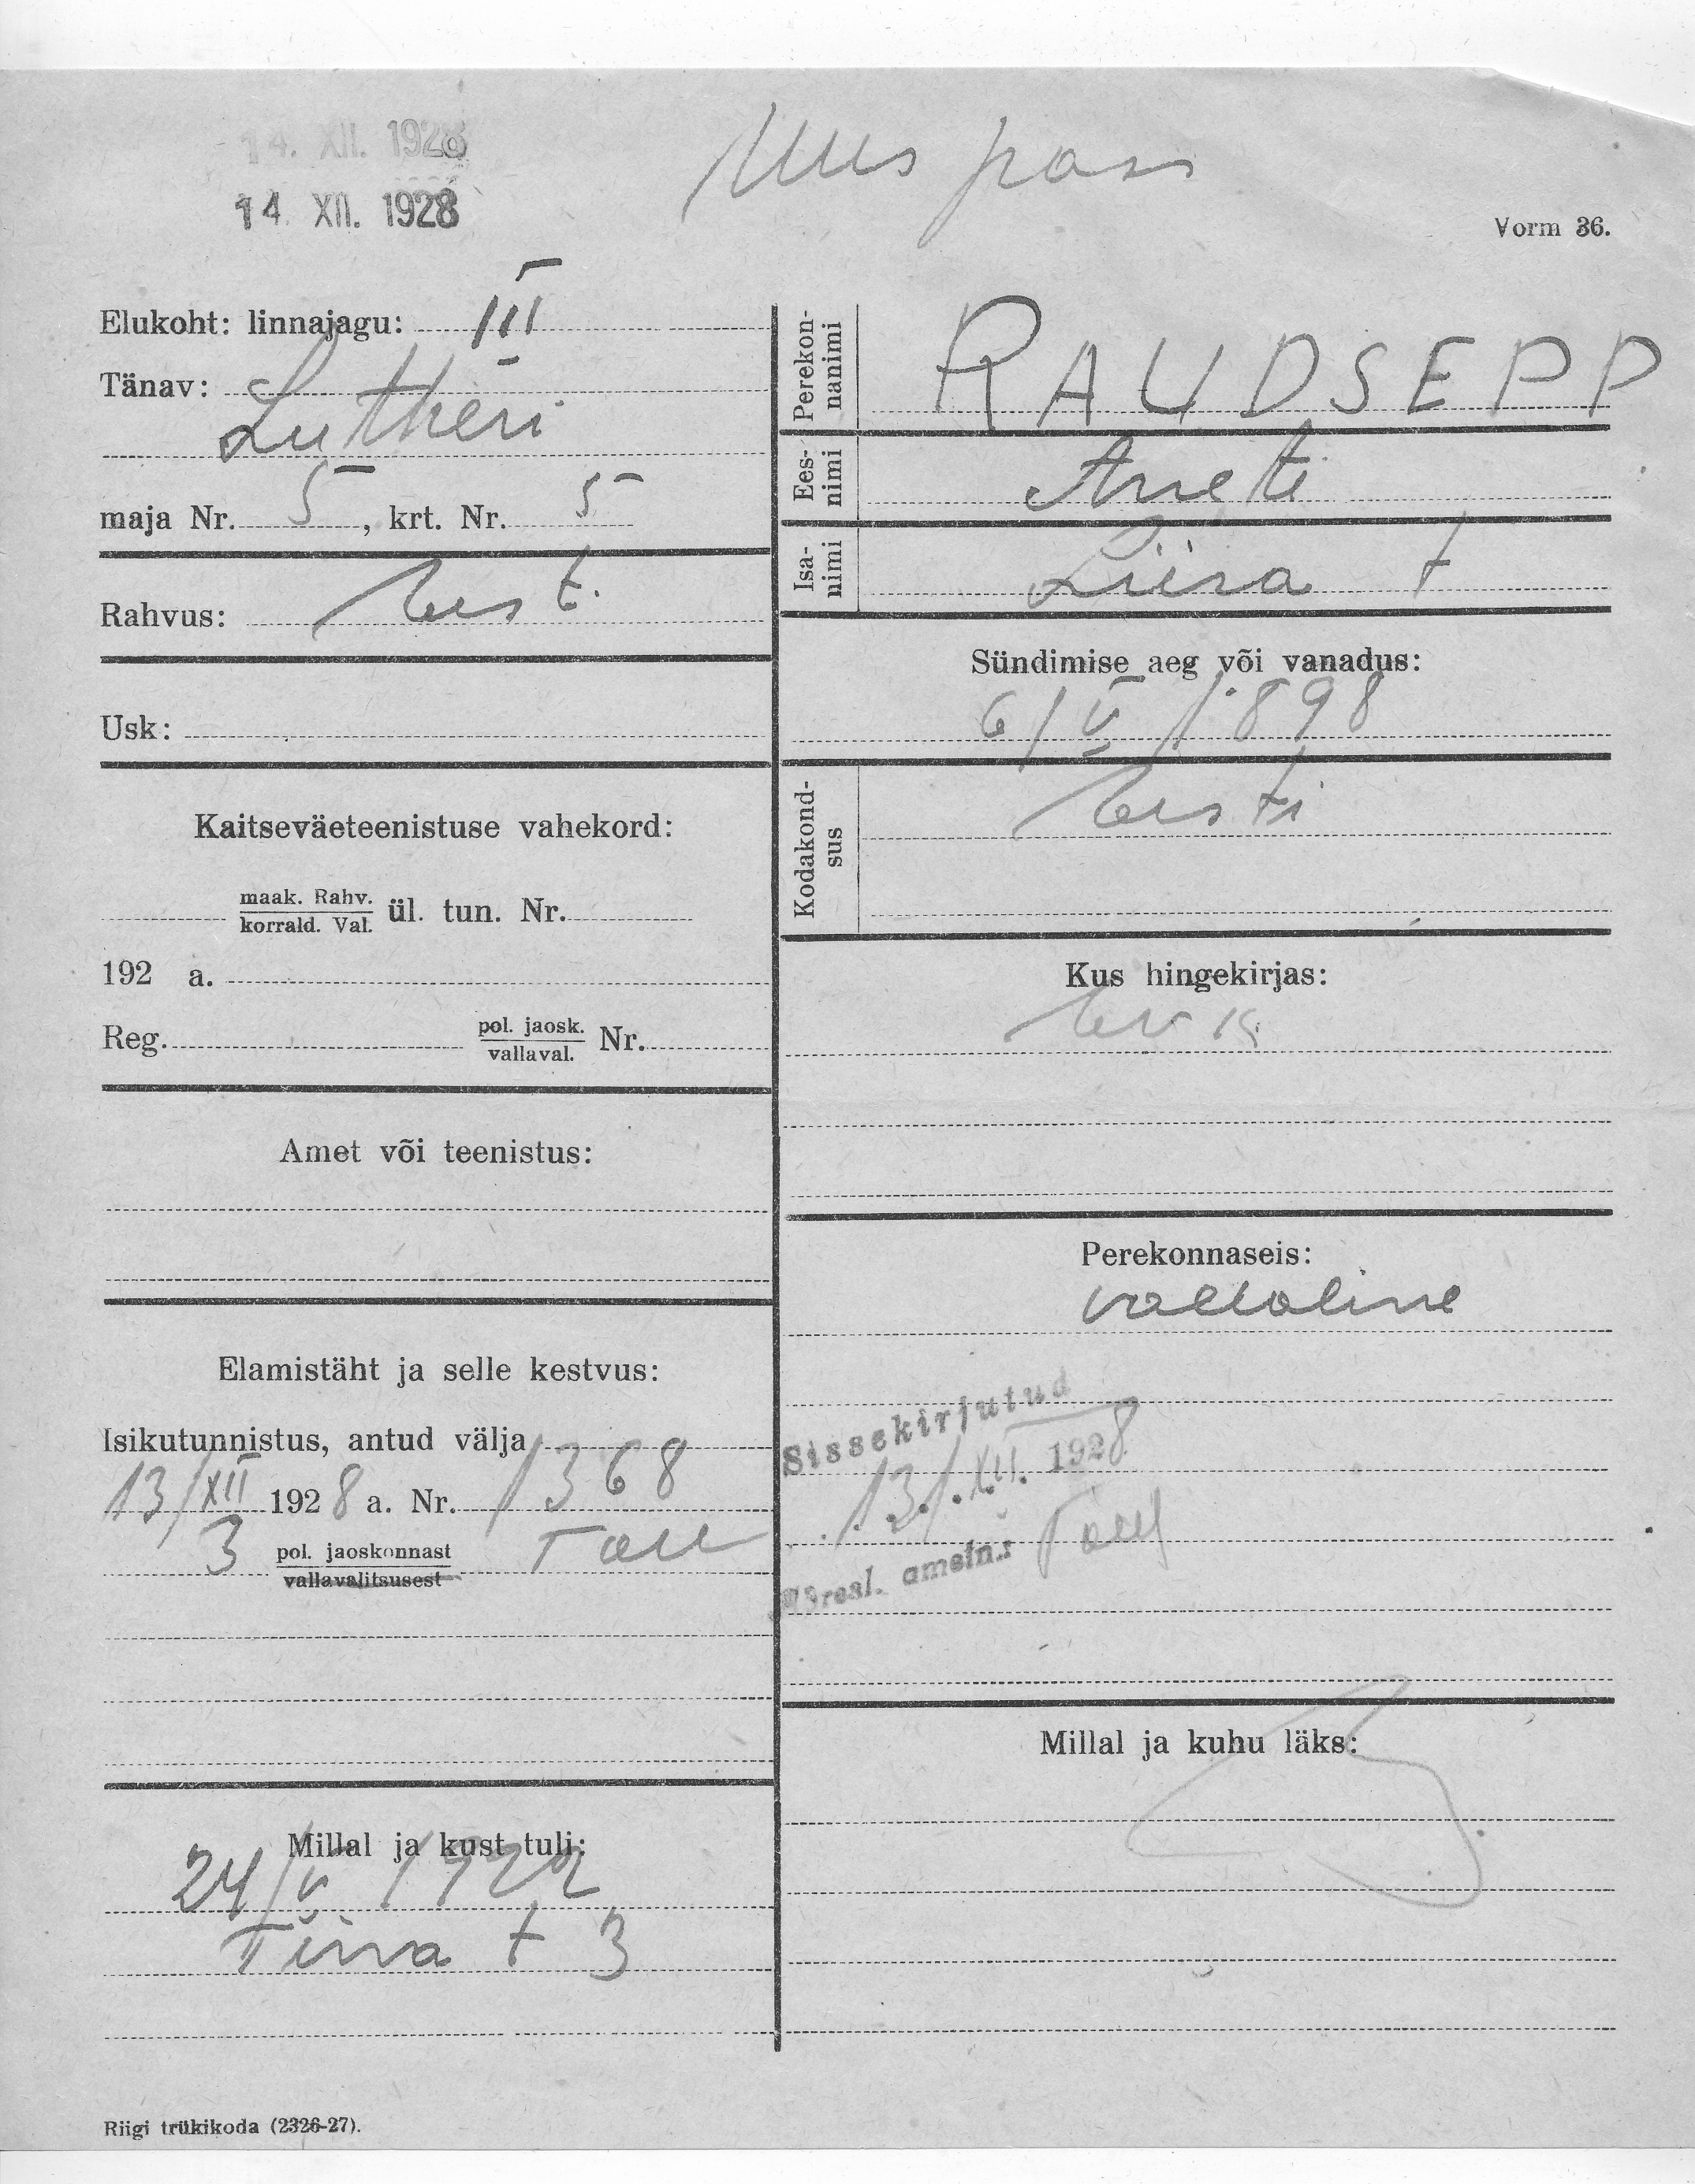 14. XII. 1928
14 XII. 1928
Uus pass
Vorm 36.
Elukoht: linnajagu: III
Tänav:
Lutheri
maja Nr. 5, krt. Nr. 5
Rahvus: Eest.
Usk:
Kaitseväeteenistuse vahekord:
maak. Rahv.
korrald. Val.
ül. tun. Nr.
192 a.
Reg. pol. jaosk.
vallaval.
Nr.
Amet või teenistus:
Elamistäht ja selle kestvus:
Isikutunnistus, antud välja
13/XII 1928 a. Nr. 1368
3 pol. jaoskonnast Tall
vallavalitsusest
Millal ja kust tuli:
24/V 1922
Tiina t 3
Riigi trükikoda (2326-27).
Perekon-
nanimi
RAUDSEPP
Ees-
nimi
Anete
Isa-
nimi
Liisa t
Sündimise aeg või vanadus:
6/V 1898
Kodakond-
sus
Eesti
Kus hingekirjas:
Perekonnaseis:
vallaline
Sissekirjutud
13/.XII. 1928
ametn.
Millal ja kuhu läks: